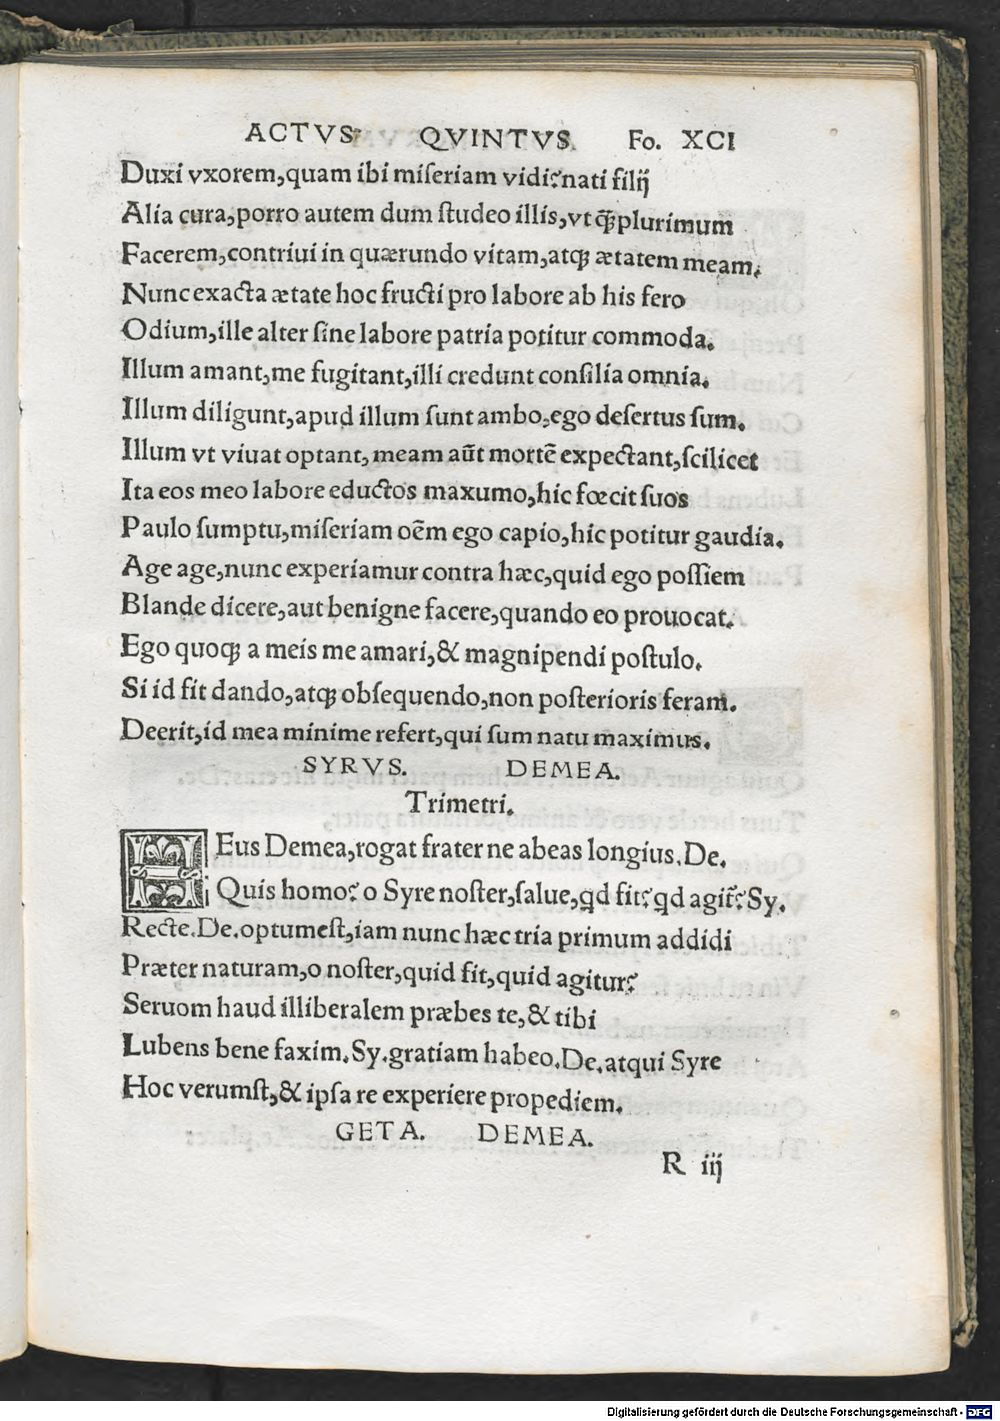 ACTVS QVINTVS Fo. XCI
Duxi vxorem,quam ibi miſeriam vidi?nati filij
Alia cura,porro autem dum ſtudeo illis,vt qȝplurimum
Facerem,contriui in quærundo vitam,atqȝ ætatem meam.
Nunc exacta ætate hoc fructi pro labore ab his fero
Odium,ille alter ſine labore patria potitur commoda.
Illum amant,me fugitant,illi credunt conſilia omnia.
Illum diligunt,apud illum ſunt ambo,ego deſertus ſum.
Illum vt viuat optant, meam aūt mortē expectant,ſcilicet
Ita eos meo labore eductos maxumo,hic fœcit ſuos
Paulo ſumptu,miſeriam oēm ego capio,hic potitur gaudia.
Age age,nunc experiamur contra hæc,quid ego poſſiem
Blande dicere,aut benigne facere,quando eo prouocat.
Ego quoqȝ a meis me amari,& magnipendi poſtulo.
Si id fit dando,atqȝ obſequendo,non poſterioris feram.
Deerit,id mea minime refert,qui ſum natu maximus.
SYRVS. DEMEA.
Trimetri.
HEus Demea,rogat frater ne abeas longius.De.
Quis homo? o Syre noſter,ſalue,qd fit? qd agit̃?Sy.
Recte.De.optumeſt,iam nunc hæc tria primum addidi
Præter naturam,o noſter,quid fit,quid agitur?
Seruom haud illiberalem præbes te,& tibi
Lubens bene faxim.Sy.gratiam habeo.De.atqui Syre
Hoc verumſt,& ipſa re experiere propediem.
GETA. DEMEA.
R iij
Digitalisierung gefördert durch die Deutsche Forschungsgemeinschaft - DFG